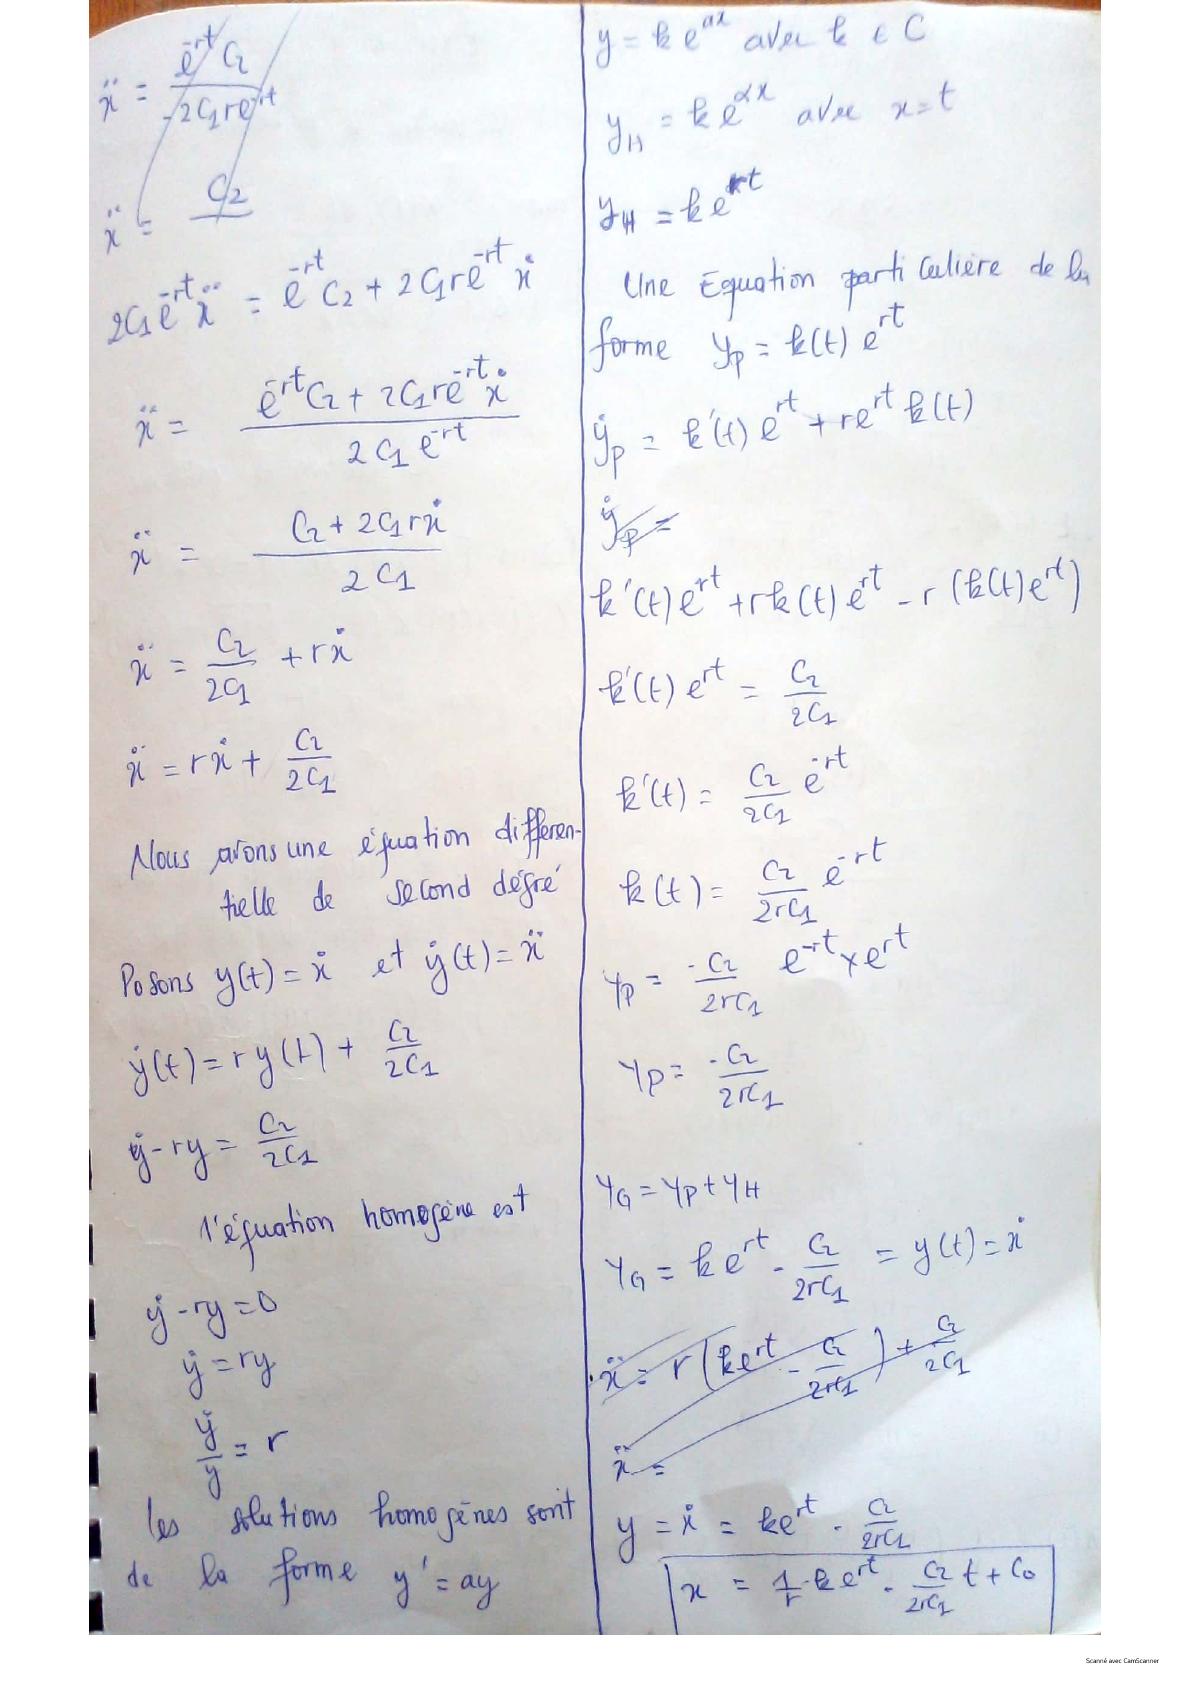 ẍ = e^{-rt} C₂ / -2C₁re^{-rt}
ẍ = C₂
2C₁e^{-rt} ẍ = e^{-rt} C₂ + 2C₁re^{-rt} ẋ
ẍ = e^{-rt}C₂ + 2C₁re^{-rt} ẋ / 2C₁e^{-rt}
ẍ = C₂ + 2C₁rẋ / 2C₁
ẍ = C₂/2C₁ + rẋ
ẍ = rẋ + C₂/2C₁
Nous avons une équation differen-
tielle de second dégré
Posons y(t) = ẋ et ẏ(t) = ẍ
ẏ(t) = ry(t) + C₂/2C₁
ẏ - ry = C₂/2C₁
l'équation homogène est
ẏ - ry = 0
ẏ = ry
ẏ/y = r
les solutions homogènes sont
de la forme y' = ay
y = k e^{ax} avec k ∈ C
y_H = k e^{αx} avec x = t
y_H = k e^{rt}
Une Equation particulière de la
forme y_p = k(t) e^{rt}
ẏ_p = k'(t) e^{rt} + re^{rt} k(t)
ẏ_p =
k'(t)e^{rt} + rk(t)e^{rt} - r(k(t)e^{rt})
k'(t) e^{rt} = C₂/2C₁
k'(t) = C₂/2C₁ e^{-rt}
k(t) = C₂/2rC₁ e^{-rt}
y_p = -C₂/2rC₁ e^{-rt} × e^{rt}
y_p = -C₂/2rC₁
y_G = y_p + y_H
y_G = k e^{rt} - C₂/2rC₁ = y(t) = ẋ
ẍ = r(ke^{rt} - C₂/2rC₁) + C₂/2C₁
ẍ =
y = ẋ = ke^{rt} - C₂/2rC₁
x = 1/r · k e^{rt} - C₂/2rC₁ t + C₀
Scanné avec CamScanner